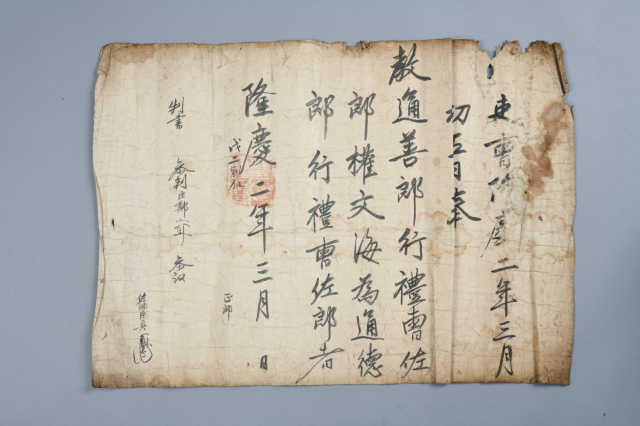 吏曹隆慶二年三月
初五日奉
教通善郎行禮曹佐
郎權文海為通德
郎行禮曹佐郎者
隆慶二年三月 日
正郎
判書 參判 參議
佐郎臣